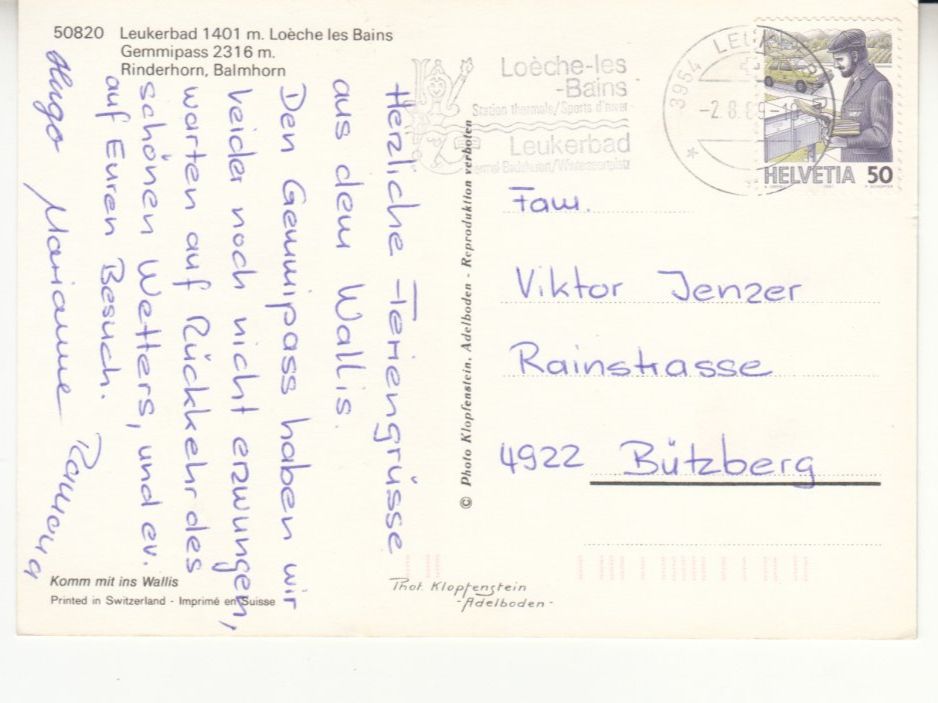 50820 Leukerbad 1401 m. Loèche les Bains
Gemmipass 2316 m.
Rinderhorn, Balmhorn
Herzliche Feriengrüsse
aus dem Wallis.
Den Gemmipass haben wir
leider noch nicht erzwungen,
warten auf Rückkehr des
schönen Wetters, und ev.
auf Euren Besuch.
Hugo Marianne Ramona
Komm mit ins Wallis
Printed in Switzerland - Imprimé en Suisse
© Photo Klopfenstein, Adelboden - Reproduktion verboten
Phot. Klopfenstein
-Adelboden-
Loèche-les
-Bains
Station thermale/Sports d'hiver
Leukerbad
3954 LEUKERBAD
-2.8.89-
HELVETIA 50
Fam.
Viktor Jenzer
Rainstrasse
4922 Bützberg